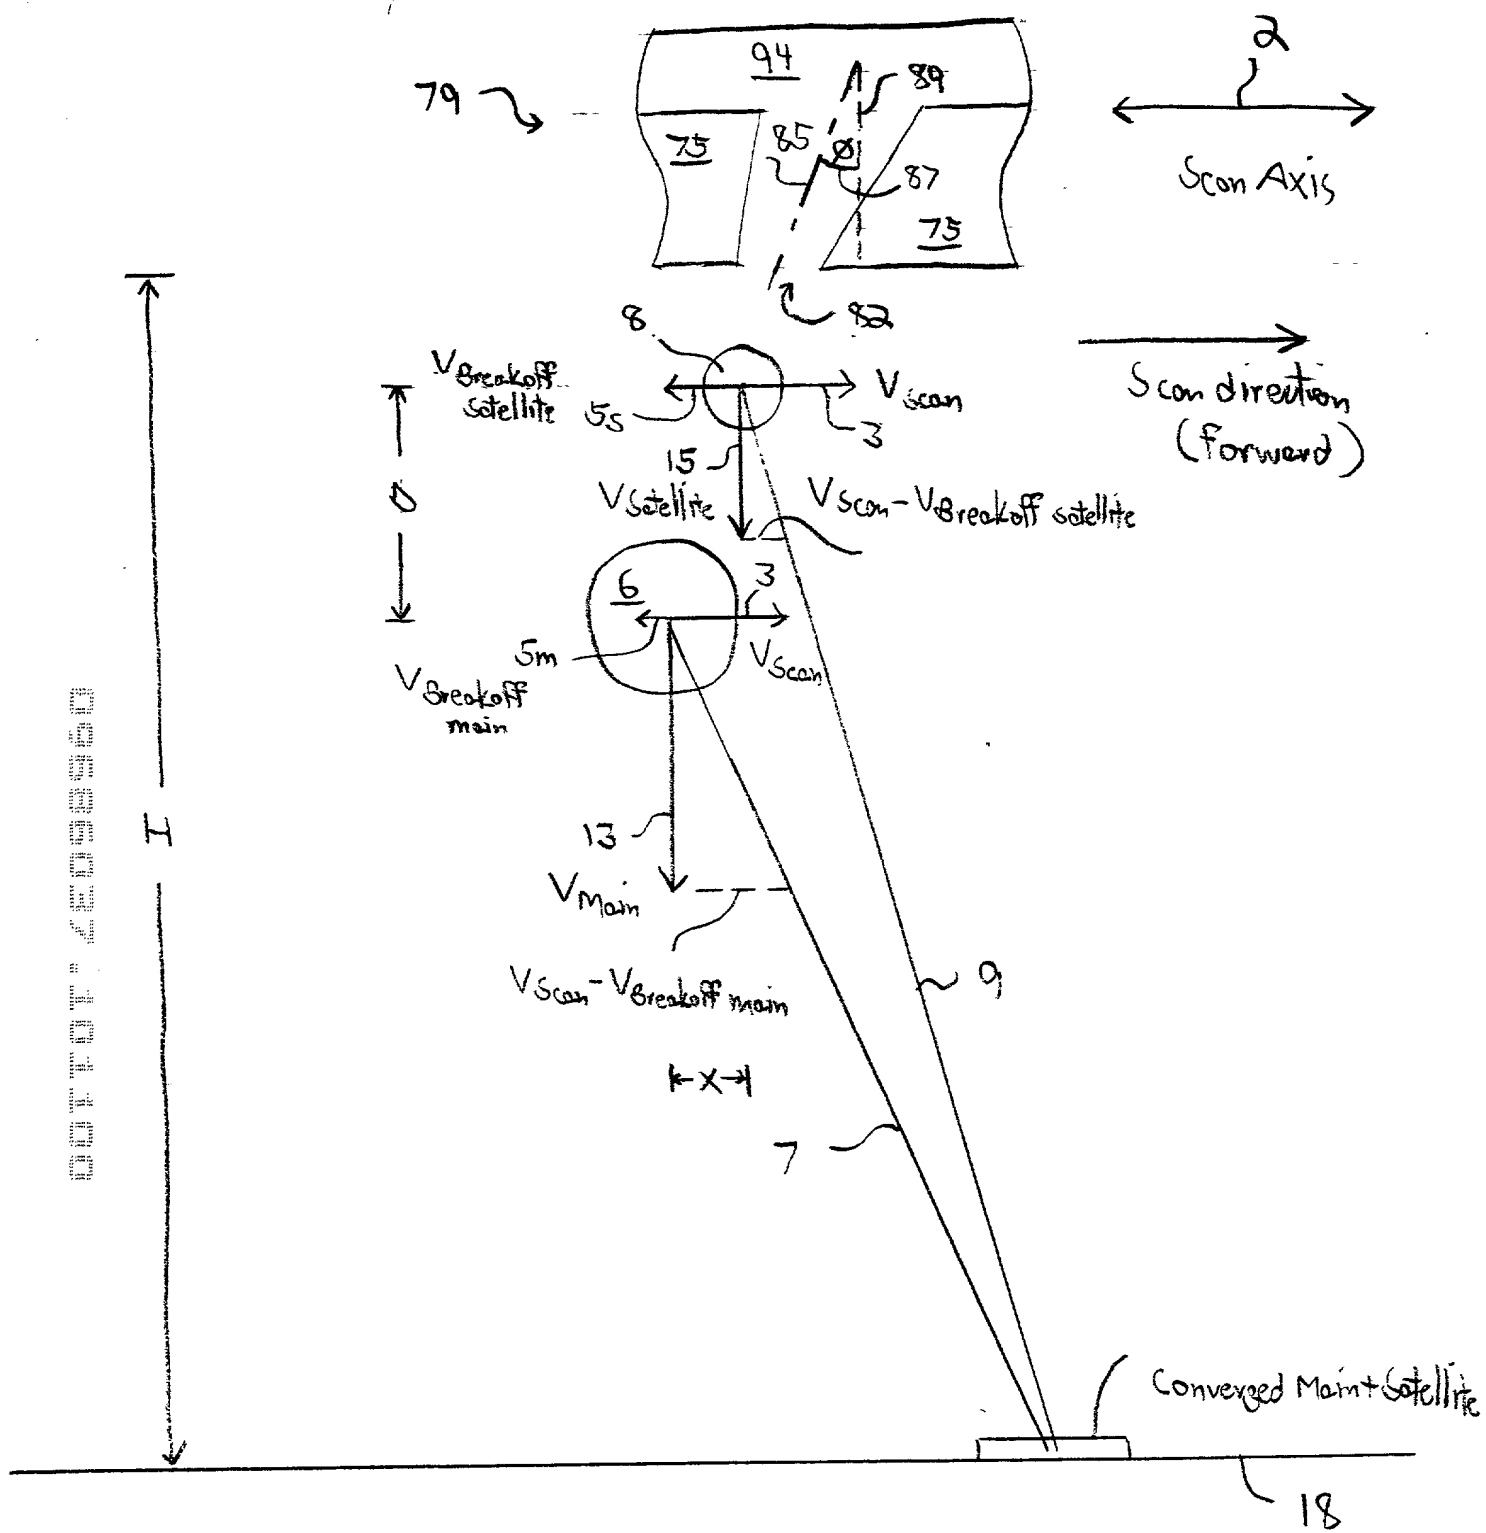 2
94
89
79
75
85
Ø
87
Scan Axis
75
82
8
VBreakoff
satellite
5s
VScan
3
Scan direction
(Forward)
15
VSatellite
VScan-VBreakoff satellite
D
6
3
5m
VScan
VBreakoff
main
H
13
VMain
VScan-VBreakoff main
9
X
7
Converged Main+Satellite
18
09686037.101100